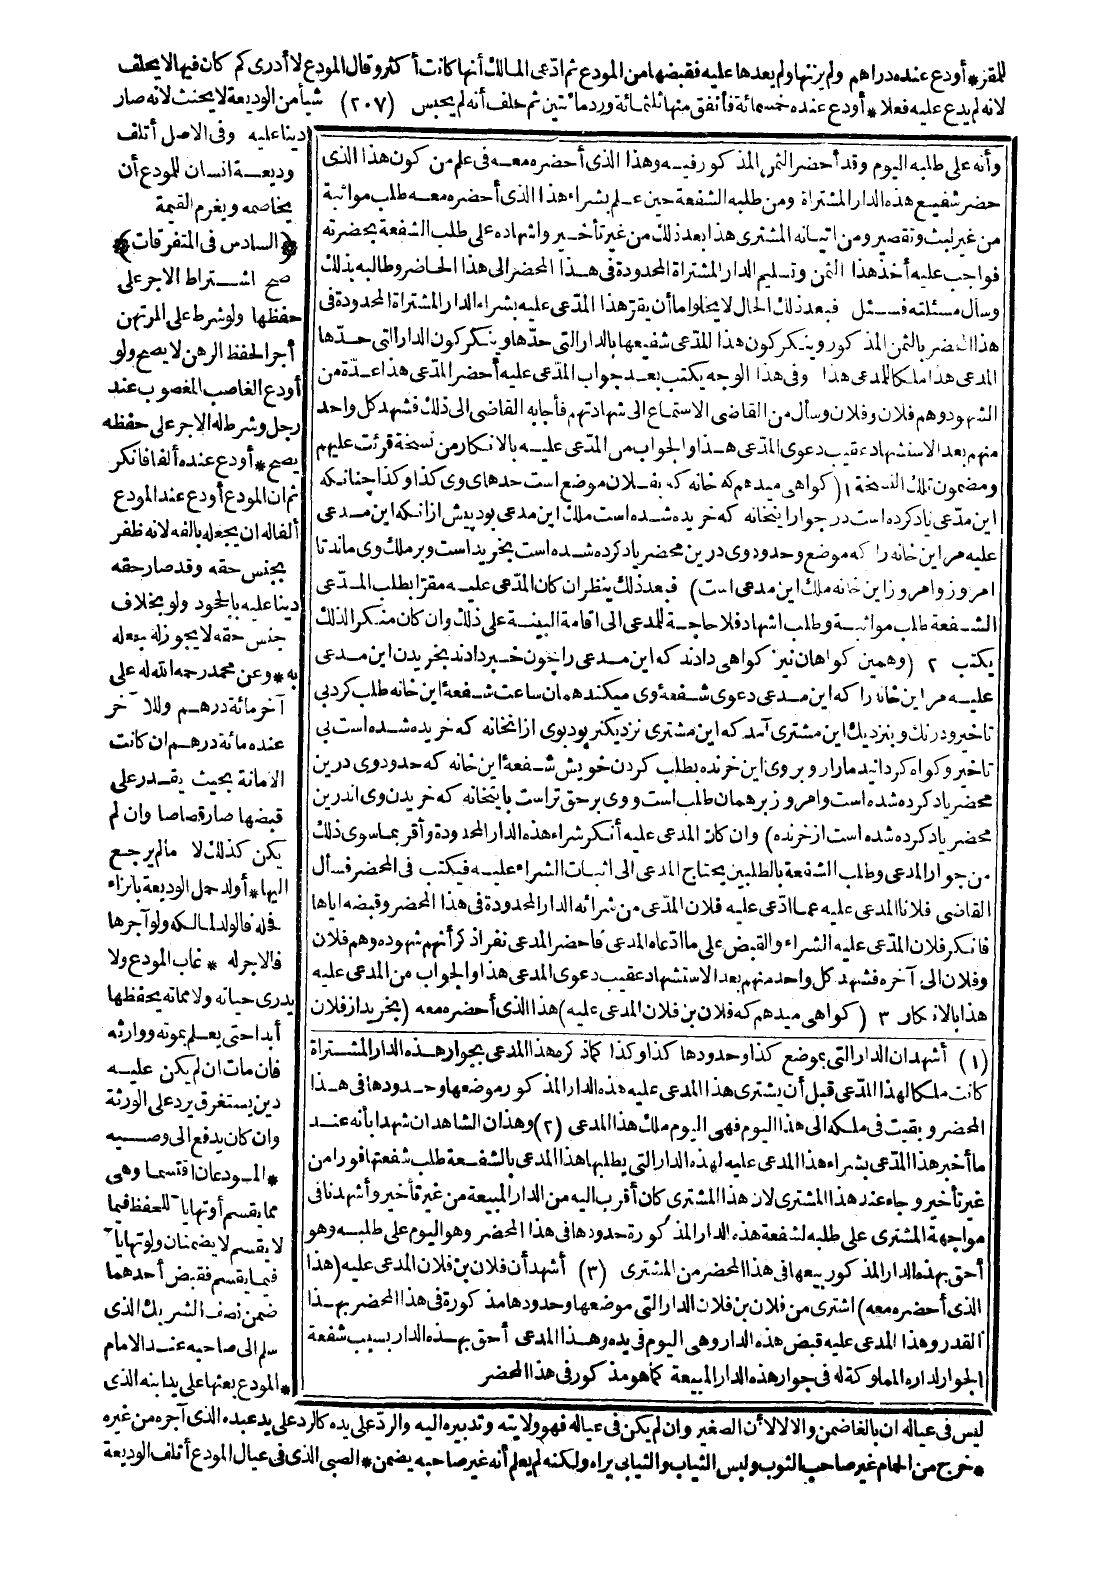 للمقر * أودع عنده دراهم ولم يزنها ولم يعدها عليه فقبضها من المودع ثم ادّعى المالك أنها كانت أكثر وقال المودع لا أدرى كم كان فيها لا يحلف
لانه لم يدع عليه فعلا * أودع عنده خمسمائة فأنفق منها ثلثمائة ورد مائتين ثم حلف أنه لم يحبس (٢٠٧) شيأ من الوديعة لا يحنث لانه صار
دينا عليه وفى الاصل أتلف
وديعة انسان للمودع أن
يخاصمه ويغرم القيمة
﴿السادس فى المتفرقات﴾
صح اشتراط الاجر على
حفظها ولو شرط على المرتهن
أجرا لحفظ الرهن لا يصح ولو
أودع الغاصب المغصوب عند
رجل وشرط له الاجر على حفظه
يصح * أودع عنده ألفا فانكر
ثم ان المودع أودع عند المودع
ألفا له ان يجعله بالفه لانه ظفر
بجنس حقه وقد صار حقه
دينا عليه بالجحود ولو بخلاف
جنس حقه لا يجوز له بيعه
به * وعن محمد رحمه الله له على
آخر مائة درهم وللآخر
عنده مائة درهم ان كانت
الامانة بحيث يقدر على
قبضها صار قصاصا وان لم
يكن كذلك لا مالم يرجع
اليها * أولد حمل الوديعة بانزاء
فحله فالولد لمالكه ولو آجرها
فالاجر له * غاب المودع ولا
يدرى حياته ولا مماته يحفظها
أبدا حتى يعلم بموته ووارثه
فان مات ان لم يكن عليه
دين يستغرق يرد على الورثة
وان كان يدفع الى وصيه
* المودعان اقتسما وهى
مما يقسم أو تهايآ للحفظ فيما
لا يقسم لا يضمنان ولو تهايآ
فيما يقسم فقبض أحدهما
ضمن نصف الشريك الذى
سلم الى صاحبه عند الامام
* المودع بعثها على يد ابنه الذى
وأنه على طلبه اليوم وقد أحضر الثمن المذكور فيه وهذا الذى أحضره معه فى علم من كون هذا الذى
حضر شفيع هذه الدار المشتراة ومن طلبه الشفعة حين علم بشراء هذا الذى أحضره معه طلب مواثبة
من غير لبث وتقصير ومن اتيانه المشترى هذا بعد ذلك من غير تأخير واشهاده على طلب الشفعة بحضرته
فواجب عليه أخذ هذا الثمن وتسليم الدار المشتراة المحدودة فى هذا المحضر الى هذا الحاضر وطالبه بذلك
وسأل مسئلته فسئل فبعد ذلك الحال لا يخلو اما أن يقر هذا المدّعى عليه بشراء الدار المشتراة المحدودة فى
هذا المحضر بالثمن المذكور وينكر كون هذا المدّعى شفيعها بالدار التى حدّها وينكر كون الدار التى حدّها
المدعى هذا ملكا للمدعى هذا وفى هذا الوجه يكتب بعد جواب المدّعى عليه أحضر المدّعى هذا عدّة من
الشهود وهم فلان وفلان وسأل من القاضى الاستماع الى شهادتهم فأجابه القاضى الى ذلك فشهد كل واحد
منهم بعد الاستشهاد عقيب دعوى المدّعى هذا والجواب من المدّعى عليه بالانكار من نسخة قرئت عليهم
ومضمون تلك النسخة ١ (كواهى ميدهم كه خانه كه بفلان موضع است حدهاى وى كذا وكذا چنانكه
اين مدّعى ياد كرده است در جوار اينخانه كه خريده شده است ملك اين مدعى بود پيش ازانكه اين مدعى
عليه مر اين خانه را كه موضع وحدود وى درين محضر ياد كرده شده است بخريد است وبر ملك وى ماند تا
امروز وامروز اين خانه ملك اين مدعى است) فبعد ذلك ينظر ان كان المدّعى عليه مقرا بطلب المدّعى
الشفعة طلب مواثبة وطلب اشهاد فلا حاجة للمدعى الى اقامة البينة على ذلك وان كان منكرا لذلك
يكتب ٢ (وهمين كواهان نيز كواهى دادند كه اين مدعى را چون خبر دادند بخريدن اين مدعى
عليه مر اين خانه را كه اين مدعى دعوى شفعهٔ وى ميكند همان ساعت شفعهٔ اين خانه طلب كرد بى
تاخير ودرنك وبنزديك اين مشترى آمد كه اين مشترى نزديكتر بود بوى ازانخانه كه خريده شده است بى
تاخير وكواه كردانيد مارا روبروى اين خرنده بطلب كردن خويش شفعهٔ اين خانه كه حدود وى درين
محضر ياد كرده شده است وامروز بر همان طلب است ووى بر حق تراست باينخانه كه خريدن وى اندرين
محضر ياد كرده شده است از خرنده) وان كان المدعى عليه أنكر شراء هذه الدار المحدودة وأقر بما سوى ذلك
من جوار المدعى وطلب الشفعة بالطلبين يحتاج المدعى الى اثبات الشراء عليه فيكتب فى المحضر فسأل
القاضى فلانا المدعى عليه عما ادّعى عليه فلان المدّعى من شرائه الدار المحدودة فى هذا المحضر وقبضه اياها
فانكر فلان المدّعى عليه الشراء والقبض على ما ادّعاه المدعى فاحضر المدعى نفرا ذكر أنهم شهوده وهم فلان
وفلان الى آخره فشهد كل واحد منهم بعد الاستشهاد عقيب دعوى المدعى هذا والجواب من المدعى عليه
هذا بالانكار ٣ (كواهى ميدهم كه فلان بن فلان المدعى عليه) هذا الذى أحضره معه (بخريد از فلان
(١) أشهد ان الدار التى بموضع كذا وحدودها كذا وكذا كما ذكره هذا المدعى بجوار هذه الدار المشتراة
كانت ملكا لهذا المدّعى قبل أن يشترى هذا المدعى عليه هذه الدار المذكور موضعها وحدودها فى هذا
المحضر وبقيت فى ملكه الى هذا اليوم فهى اليوم ملك هذا المدعى (٢) وهذان الشاهدان شهدا بأنه عند
ما أخبر هذا المدّعى بشراء هذا المدعى عليه لهذه الدار التى يطلبها هذا المدعى بالشفعة طلب شفعتها فورا من
غير تأخير وجاء عند هذا المشترى لان هذا المشترى كان أقرب اليه من الدار المبيعة من غير تأخير وأشهدنا فى
مواجهة المشترى على طلبه لشفعة هذه الدار المذكورة حدودها فى هذا المحضر وهو اليوم على طلبه وهو
أحق بهذه الدار المذكور بيعها فى هذا المحضر من المشترى (٣) أشهد أن فلان بن فلان المدعى عليه (هذا
الذى أحضره معه) اشترى من فلان بن فلان الدار التى موضعها وحدودها مذكورة فى هذا المحضر بهذا
القدر وهذا المدعى عليه قبض هذه الدار وهى اليوم فى يده وهذا المدعى أحق بهذه الدار بسبب شفعة
الجوار لداره المملوكة له فى جوار هذه الدار المبيعة كما هو مذكور فى هذا المحضر
ليس فى عياله ان بالغا ضمن والا لا لأن الصغير وان لم يكن فى عياله فهو ولايته وتدبيره اليه والردّ على يده كالرد على يد عبده الذى آجره من غيره
* خرج من الحمام غير صاحب الثوب ولبس الثياب والثيابى يراه ولكنه لم يعلم أنه غير صاحبه يضمن * الصبى الذى فى عيال المودع أتلف الوديعة